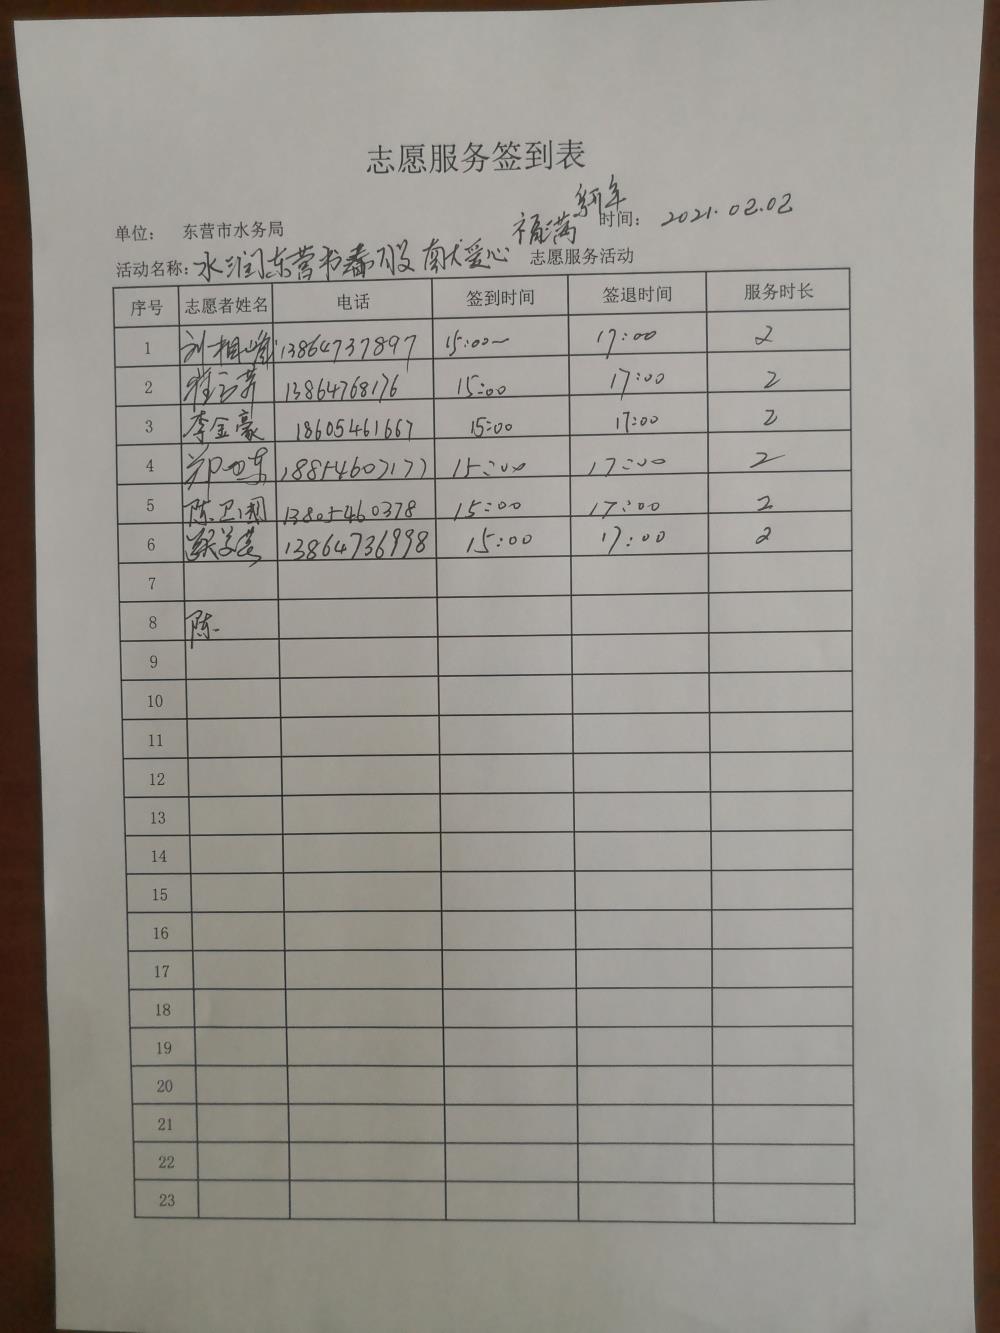 志愿服务签到表
单位： 东营市水务局 时间： 2021.02.02
活动名称： 水润东营 献爱心 福满新年 志愿服务活动
序号 志愿者姓名 电话 签到时间 签退时间 服务时长
1 刘相峰 13864737897 15:00 17:00 2
2 13864768176 15:00 17:00 2
3 李金豪 18605461667 15:00 17:00 2
4 18854607177 15:00 17:00 2
5 陈卫国 13805460378 15:00 17:00 2
6 13864736998 15:00 17:00 2
7
8 陈
9
10
11
12
13
14
15
16
17
18
19
20
21
22
23